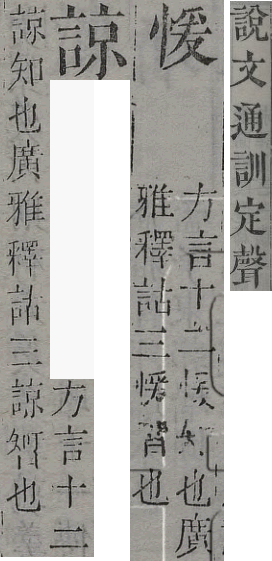 說文通訓定聲
愋
方言十二愋知也廣
雅釋詁三愋智也
諒
方言十二
諒知也廣雅釋詁三諒智也